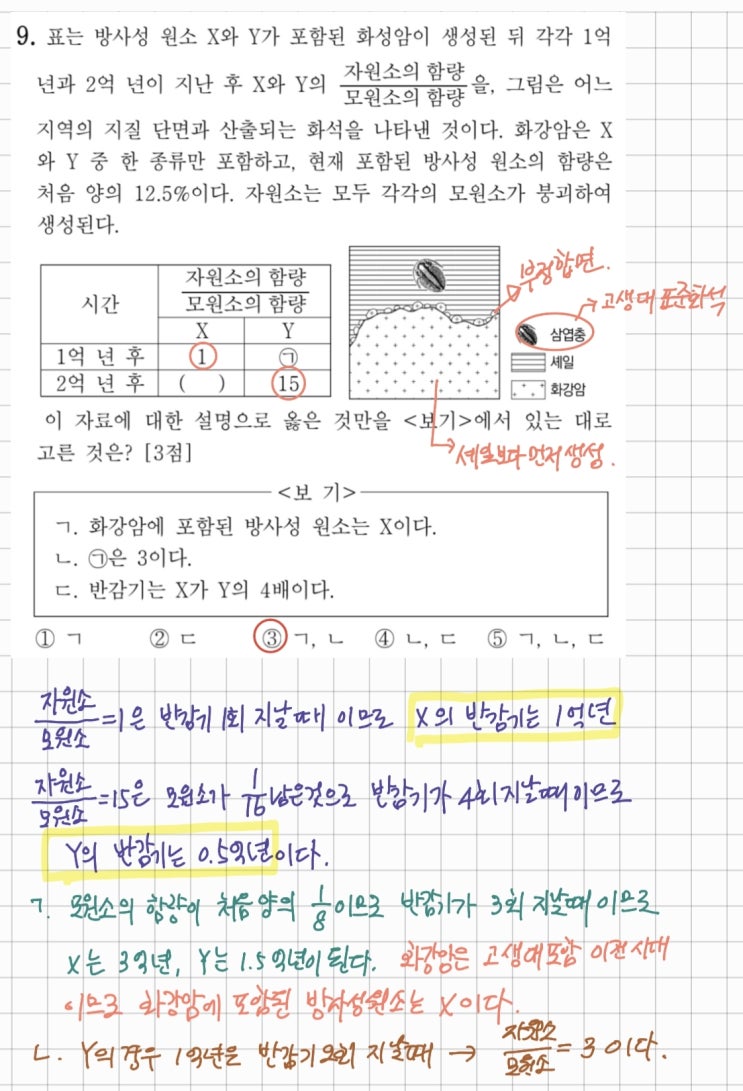 9. 표는 방사성 원소 X와 Y가 포함된 화성암이 생성된 뒤 각각 1억
년과 2억 년이 지난 후 X와 Y의 자원소의 함량/모원소의 함량을, 그림은 어느
지역의 지질 단면과 산출되는 화석을 나타낸 것이다. 화강암은 X
와 Y 중 한 종류만 포함하고, 현재 포함된 방사성 원소의 함량은
처음 양의 12.5%이다. 자원소는 모두 각각의 모원소가 붕괴하여
생성된다.
시간
자원소의 함량
모원소의 함량
X Y
1억 년 후 1 ㉠
2억 년 후 ( ) 15
부정합면.
→ 고생대 표준화석
삼엽충
셰일
화강암
→ 셰일보다 먼저 생성.
이 자료에 대한 설명으로 옳은 것만을 <보기>에서 있는 대로
고른 것은? [3점]
<보 기>
ㄱ. 화강암에 포함된 방사성 원소는 X이다.
ㄴ. ㉠은 3이다.
ㄷ. 반감기는 X가 Y의 4배이다.
① ㄱ ② ㄷ ③ ㄱ, ㄴ ④ ㄴ, ㄷ ⑤ ㄱ, ㄴ, ㄷ
자원소/모원소=1은 반감기 1회 지날때 이므로 X의 반감기는 1억년
자원소/모원소=15은 모원소가 1/16 남은것으로 반감기가 4회 지날때 이므로
Y의 반감기는 0.5억년이다.
ㄱ. 모원소의 함량이 처음양의 1/8이므로 반감기가 3회 지날때 이므로
X는 3억년, Y는 1.5억년이 된다. 화강암은 고생대포함 이전시대
이므로 화강암에 포함된 방사성원소는 X이다.
ㄴ. Y의 경우 1억년은 반감기 2회 지날때 → 자원소/모원소 = 3 이다.